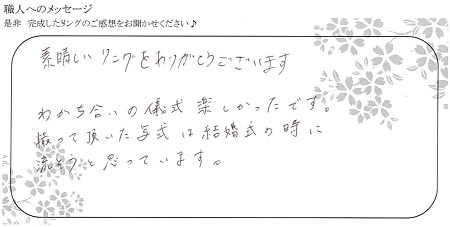 職人へのメッセージ
是非 完成したリングのご感想をお聞かせください♪
素晴しいリングをありがとうございます
わかち合いの儀式楽しかったです。
撮って頂いた写式は結婚式の時に
流そうと思っています。